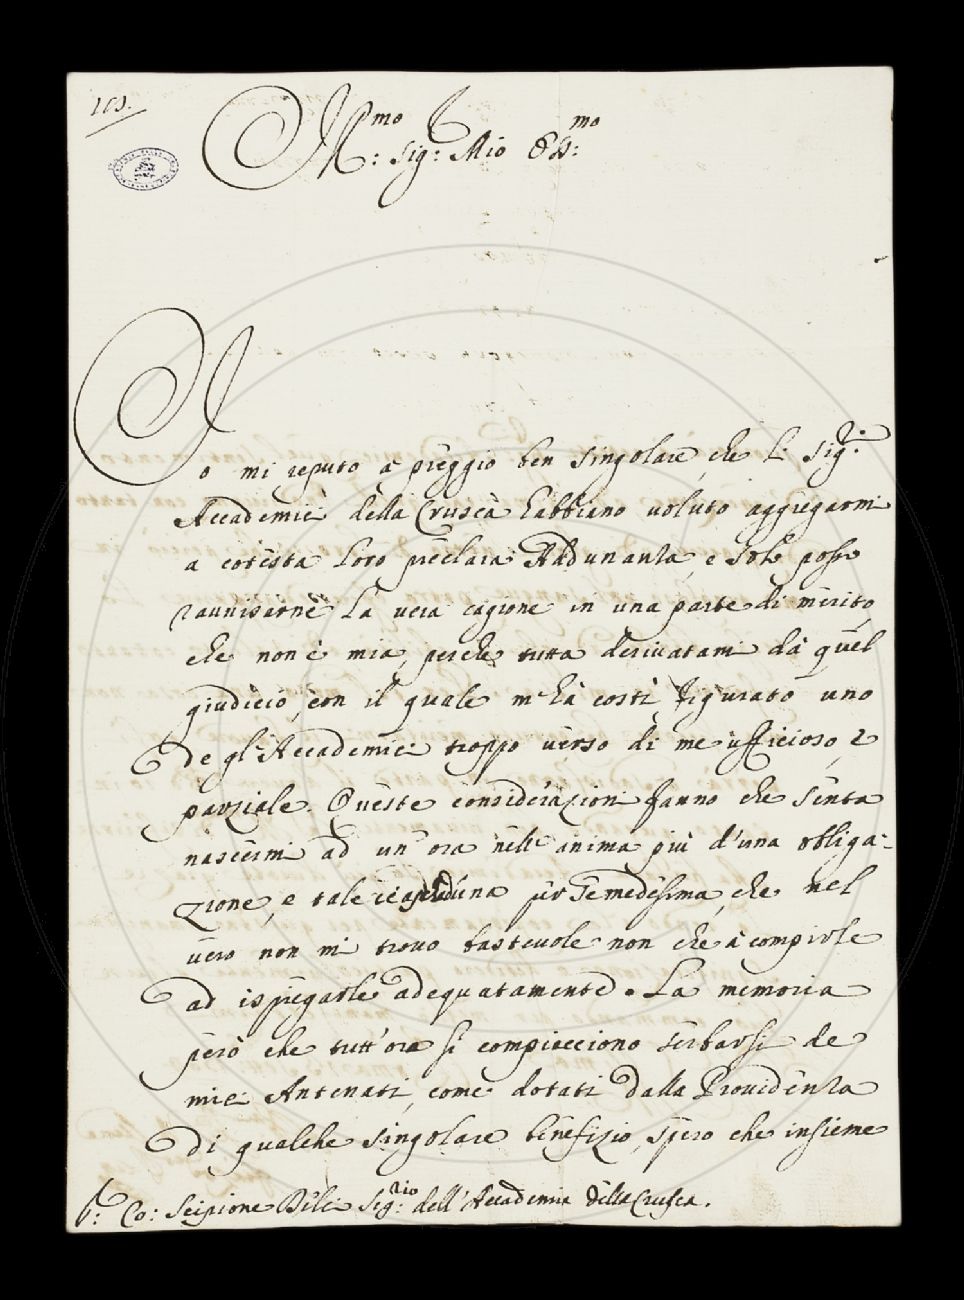 Ill.mo Sig: Mio Oss:mo
Io mi reputo à preggio ben singolare, che li Sig.ri
Accademici della Cruscà habbiano voluto aggregarmi
a cotesta loro preclara Adunanza, e solo posso
ravvisarne la vera cagione in una parte di merito
che non è mia, perche tutta derivatami dà quel
giudicio, con il quale m'hà costì figurato uno
de gl'Accademici troppo verso di me ufficioso, e
parziale. Queste considerazioni fanno che senta
nascermi ad un'ora nell'anima più d'una obliga-
zione, e tale è ciascheduna per se medesima, che nel
vero non mi trovo bastevole non che à compirle
ad ispiegarle adequatamente. La memoria
però che tutt'ora si compiacciono serbarsi de
miei Antenati, come dotati dalla Providenza
di qualche singolare benefizio, spero che insieme
Co: Scipione Bili Sig:rio dell'Accademia della Crusca.